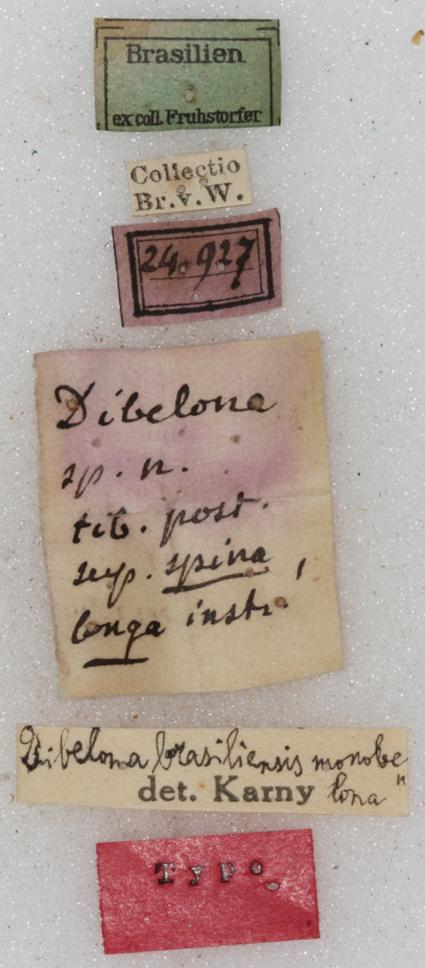 Brasilien
ex coll. Fruhstorfer
Collectio
Br. v. W.
24.927
Dibelona
sp. n.
tib. post.
sup. spina
longa instr.
Dibelona brasiliensis monobe
det. Karny lona"
Type